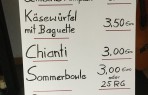 Käsewürfel
mit Baguette 3,50 Euro
Chianti 3,00 Euro
Sommerbowle 3,00 Euro
oder
25 RG